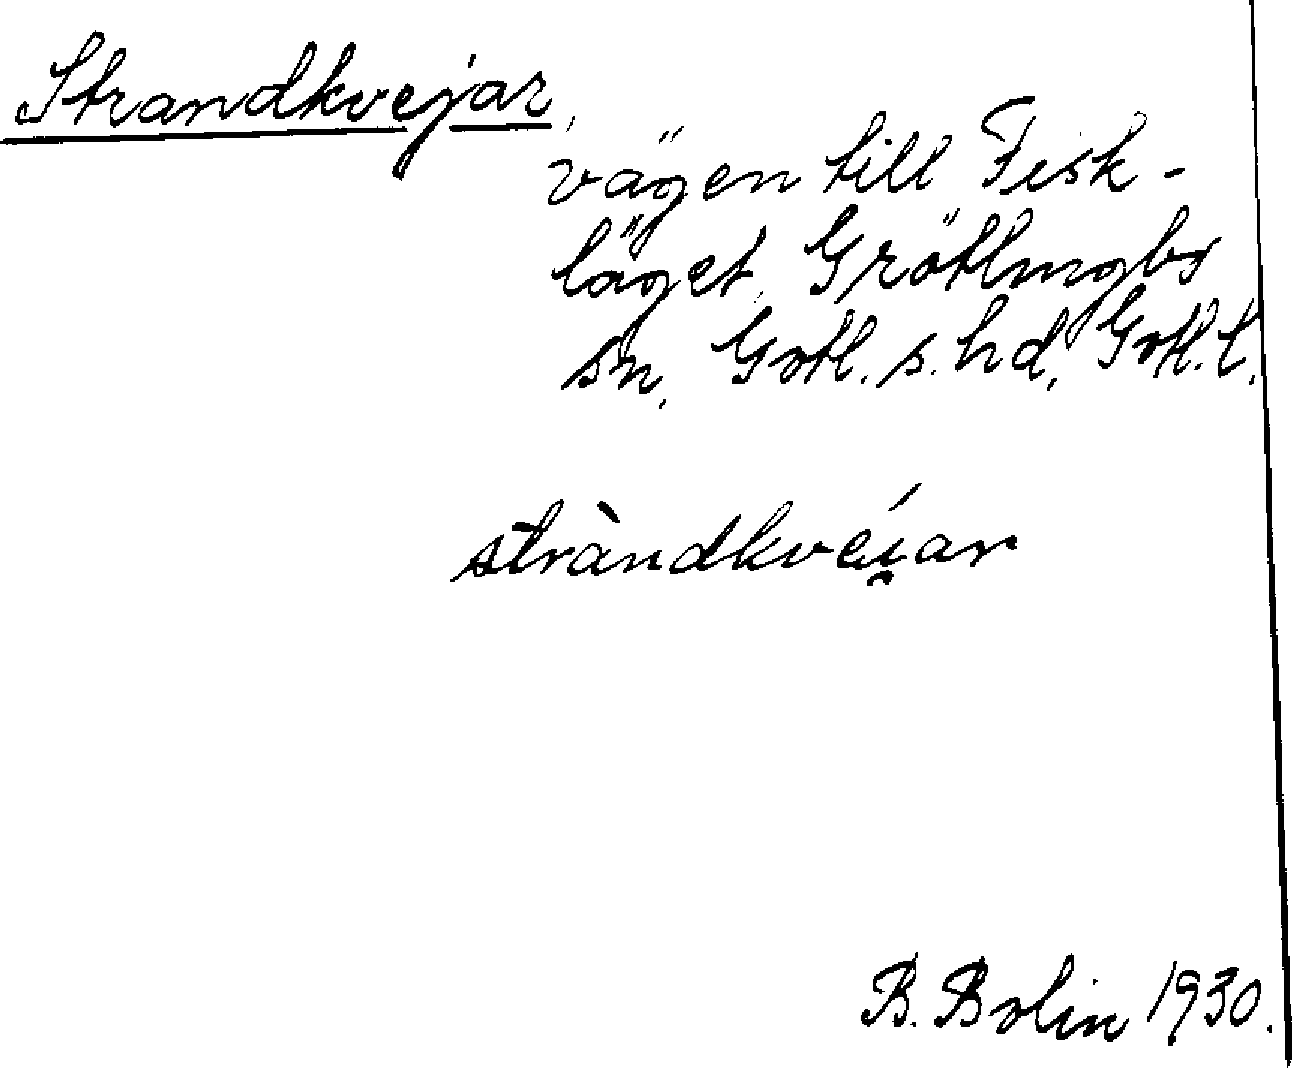 Strandkvejar,
vägen till Fisk-
läget, Grötlingbo
sn, Gotl. s. hd, Gotl. l.
stràndkvéi̯ar
B. Bolin 1930.